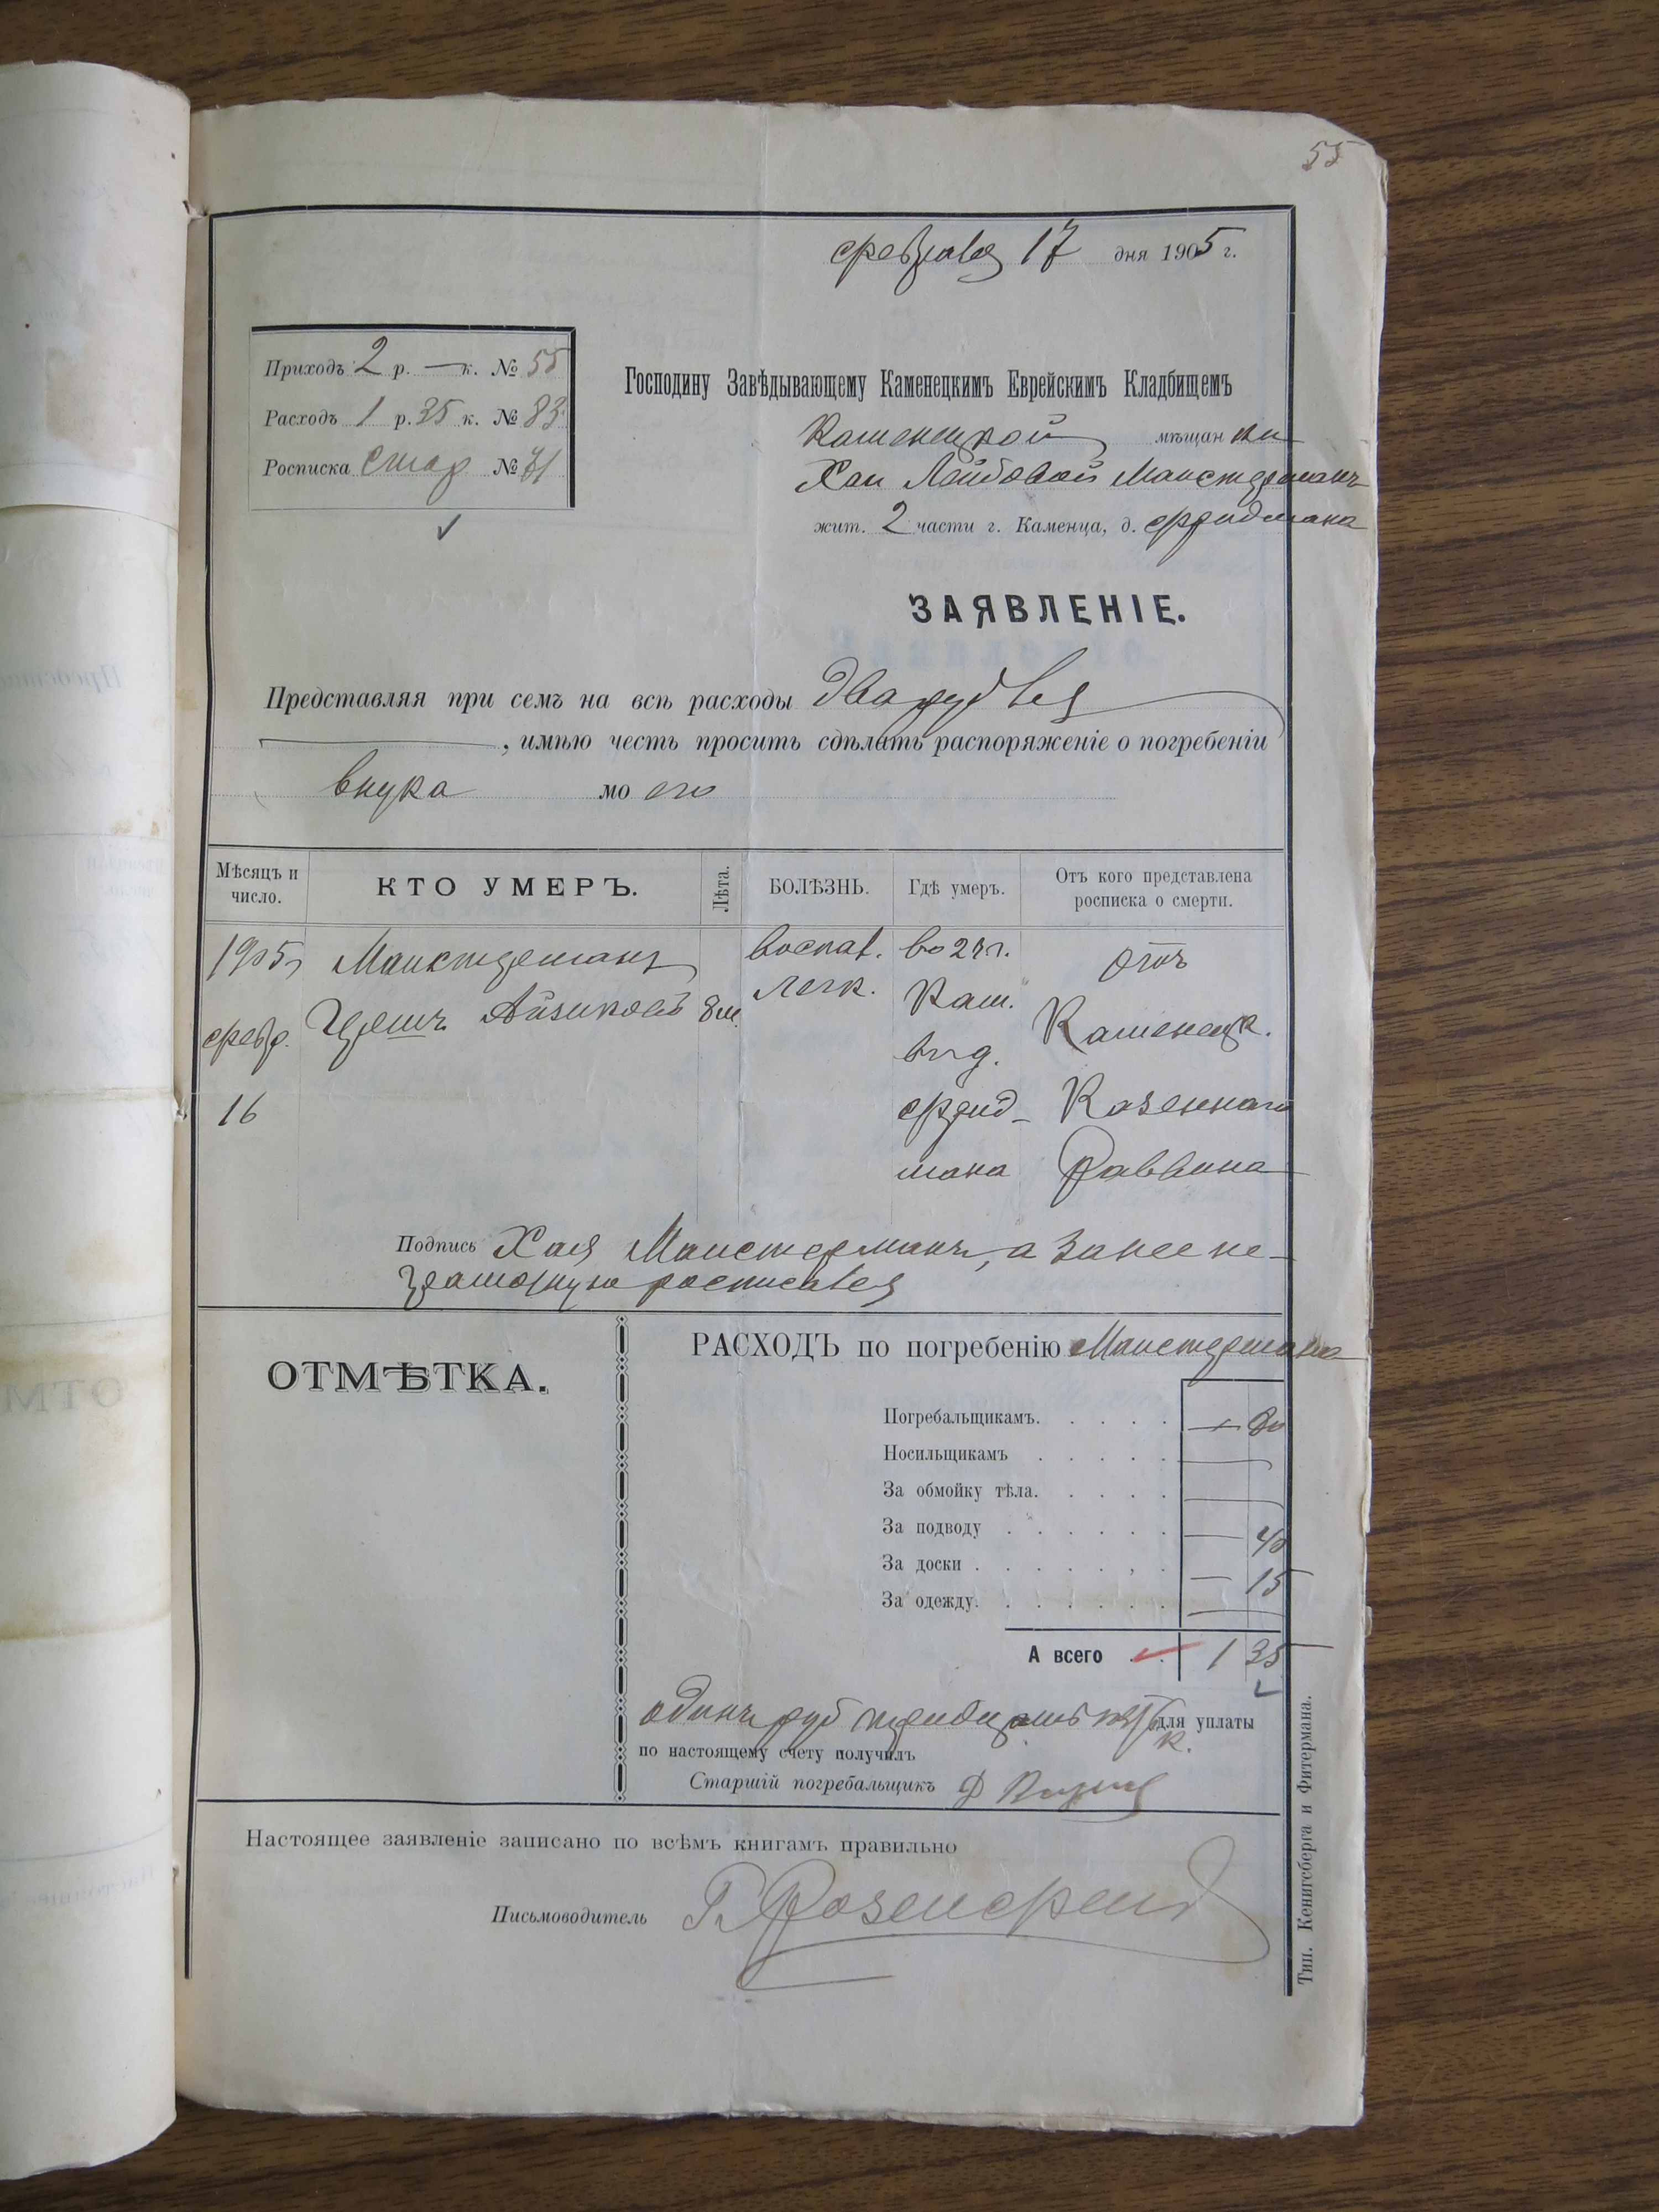 55
февраля 17 дня 1905 г.
Приходъ 2 р. — к. № 55
Расходъ 1 р. 35 к. № 83
Росписка стар № 71
Господину Завѣдывающему Каменецкимъ Еврейскимъ Кладбищемъ
Каменецкой мѣщанки
Хаи Лейбовой Маистерманъ
жит. 2 части г. Каменца, д. Фридмана
ЗАЯВЛЕНІЕ.
Представляя при семъ на всѣ расходы два рубля
, имѣю честь просить сдѣлать распоряженіе о погребеніи
внука моего
Мѣсяцъ и число.
КТО УМЕРЪ.
Лѣта.
БОЛѢЗНЬ.
Гдѣ умеръ.
Отъ кого представлена росписка о смерти.
1905 Маистерманъ воспал. во 2 ч. г. Отъ
февр. Айзиковъ 8 м. легк. Кам. Каменецк.
16 въ д. Фрид- Казеннаго
мана Раввина
Подпись Хая Маистерманъ, а за нее не-
грамотную росписался
ОТМѢТКА.
РАСХОДЪ по погребенію Маистермана
Погребальщикамъ. — 80
Носильщикамъ —
За обмойку тѣла. —
За подводу — 40
За доски — 15
За одежду. —
А всего 1 35
одинъ руб тридцать пять к. для уплаты
по настоящему счету получилъ
Старшій погребальщикъ
Настоящее заявленіе записано по всѣмъ книгамъ правильно
Письмоводитель Г. Розенфельд
Тип. Кенигсберга и Фитермана.